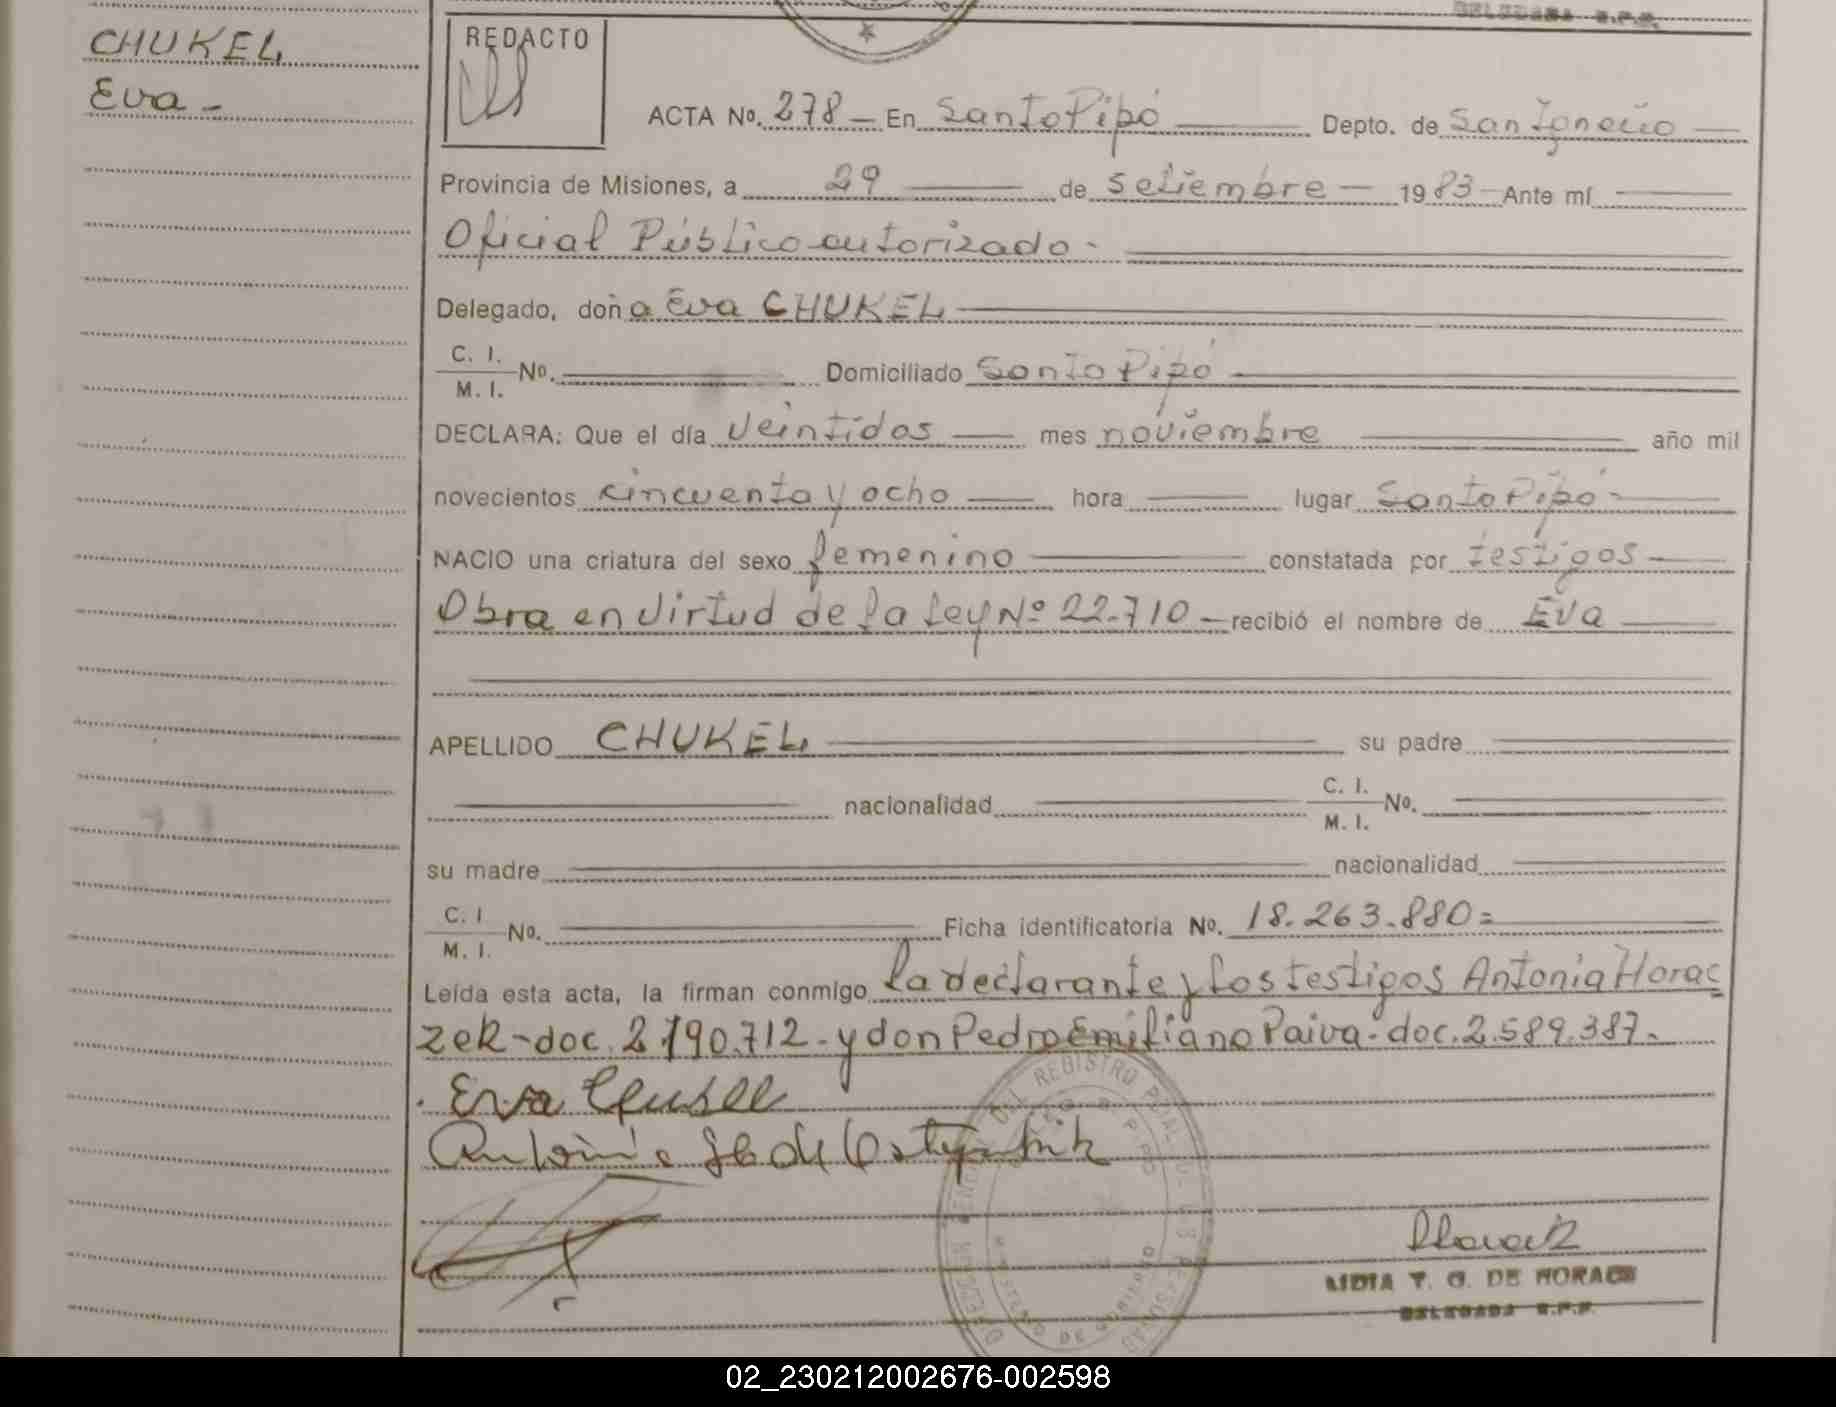 DELEGADA R.P.P.
CHUKEL
Eva -
REDACTO
ACTA No. 278 - En Santo Pipó Depto. de San Ignacio
Provincia de Misiones, a 29 de Setiembre - 1983 Ante mí
Oficial Público autorizado -
Delegado, doña Eva CHUKEL
C. I.
M. I. No. Domiciliado Santo Pipó
DECLARA: Que el día Veintidos mes noviembre año mil
novecientos cincuenta y ocho hora lugar Santo Pipó
NACIO una criatura del sexo femenino constatada por testigos
Obra en virtud de la Ley Nº 22.710 - recibió el nombre de Eva
APELLIDO CHUKEL su padre
nacionalidad C. I.
M. I. No.
su madre nacionalidad
C. I
M. I. No. Ficha identificatoria No. 18.263.880=
Leída esta acta, la firman conmigo la declarante y los testigos Antonia Horac
zek - doc. 2.190.712 - y don Pedro Emiliano Paiva - doc. 2.589.387.
Eva
Antonia
LIDIA T. G. DE HORACE
DELEGADA R.P.P.
02_230212002676-002598